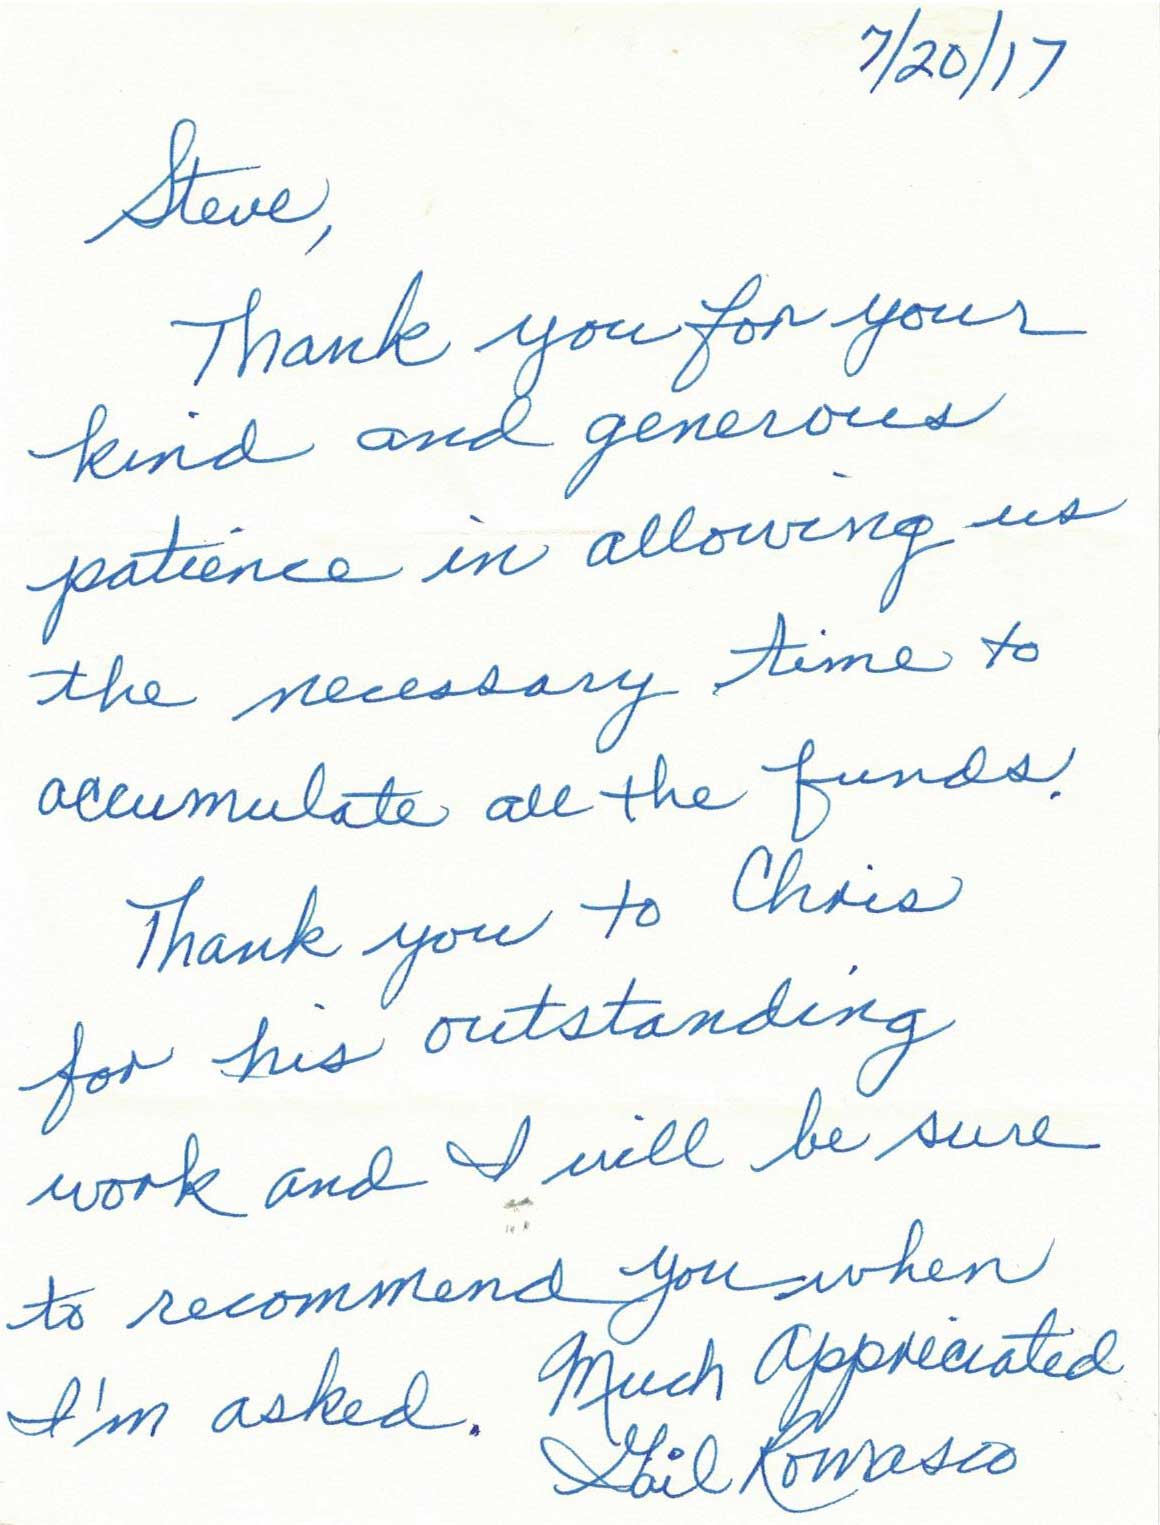 7/20/17
Steve,
Thank you for your
kind and generous
patience in allowing us
the necessary time to
accumulate all the funds.
Thank you to Chris
for his outstanding
work and I will be sure
to recommend you when
I'm asked. Much Appreciated
Gail Romasco